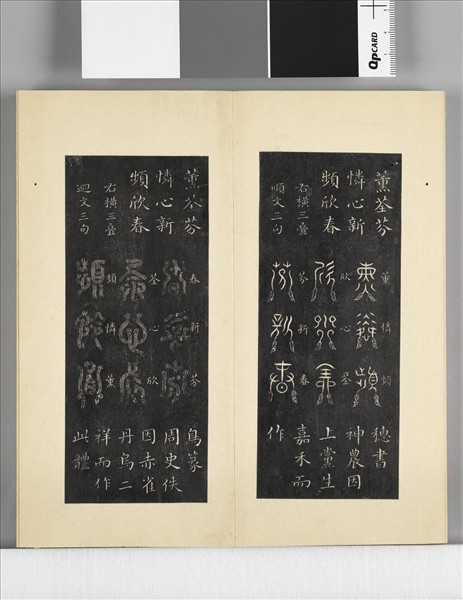 QPCARD
薰荃芬
憐心新
頻欣春
右橫三疊
順文三句
薰憐頻
欣心荃
芬新春
穗書
神農因
上黨生
嘉禾而
作
薰荃芬
憐心新
頻欣春
右橫三疊
迴文三句
春新芬
荃心欣
頻憐薰
鳥篆
周史佚
因赤雀
丹烏二
祥而作
此體